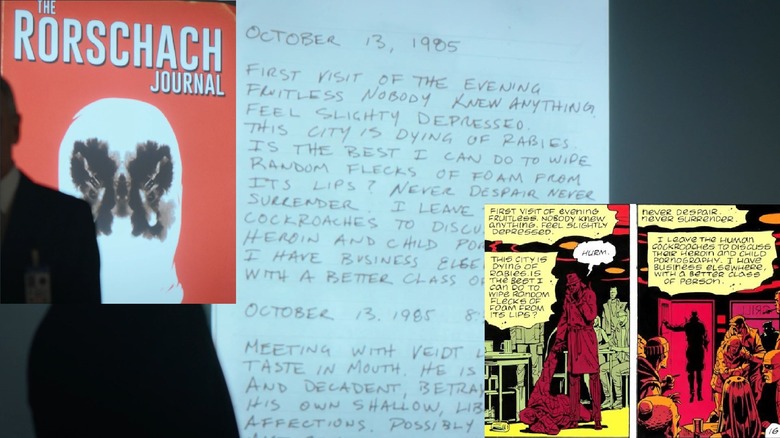 THE
RORSCHACH
JOURNAL
OCTOBER 13, 1985
FIRST VISIT OF THE EVENING
FRUITLESS NOBODY KNEW ANYTHING.
FEEL SLIGHTY DEPRESSED.
THIS CITY IS DYING OF RABIES.
IS THE BEST I CAN DO TO WIPE
RANDOM FLECKS OF FOAM FROM
ITS LIPS? NEVER DESPAIR NEVER
SURRENDER. I LEAVE
COCKROACHES TO DISCU
HEROIN AND CHILD PO
I HAVE BUSINESS ELSE
WITH A BETTER CLASS O
OCTOBER 13. 1985 8.
MEETING WITH VEIDT L
TASTE IN MOUTH. HE IS
AND DECADENT, BETRA
HIS OWN SHALLOW, LIB
AFFECTIONS. POSSIBLY
FIRST VISIT OF EVENING
FRUITLESS. NOBODY KNEW
ANYTHING. FEEL SLIGHTLY
DEPRESSED.
HURM.
THIS CITY IS
DYING OF
RABIES. IS
THE BEST I
CAN DO TO
WIPE RANDOM
FLECKS OF
FOAM FROM
ITS LIPS?
NEVER DESPAIR.
NEVER SURRENDER.
I LEAVE THE HUMAN
COCKROACHES TO DISCUSS
THEIR HEROIN AND CHILD
PORNOGRAPHY. I HAVE
BUSINESS ELSEWHERE,
WITH A BETTER CLASS
OF PERSON.
16